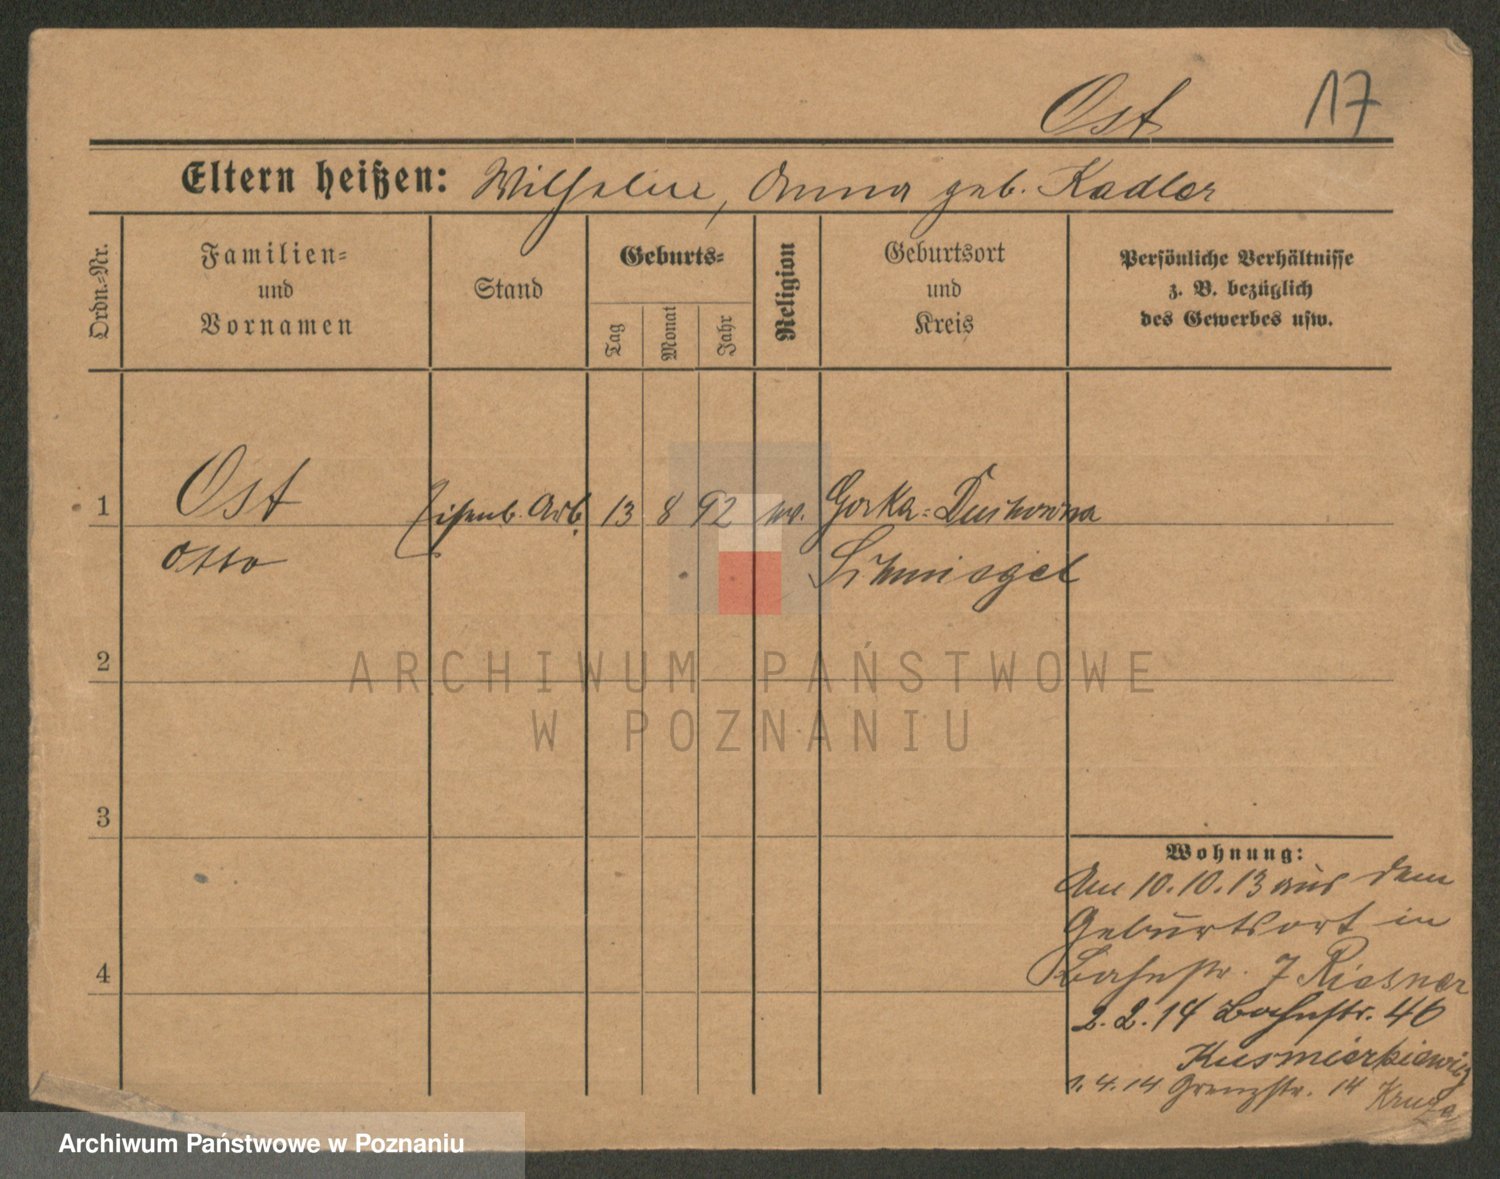 Ost 17
Eltern heißen: Wilhelm, Anna geb. Kadler
Ordn.-Nr.
Familien-
und
Vornamen
Stand
Geburts-
Tag
Monat
Jahr
Religion
Geburtsort
und
Kreis
Persönliche Verhältnisse
z. B. bezüglich
des Gewerbes usw.
1 Ost Eisenb. Arb. 13 8 92 ev. Gorka-Duchowna
Otto Schmiegel
2
ARCHIWUM PAŃSTWOWE
W POZNANIU
3
Wohnung:
Am 10.10.13 aus dem
Geburtsort in
4
Bahnstr. 7 Riesner
2.2.14 Bahnstr. 46
Kusmierkiewicz
1.4.14 Grenzstr. 14
Archiwum Państwowe w Poznaniu